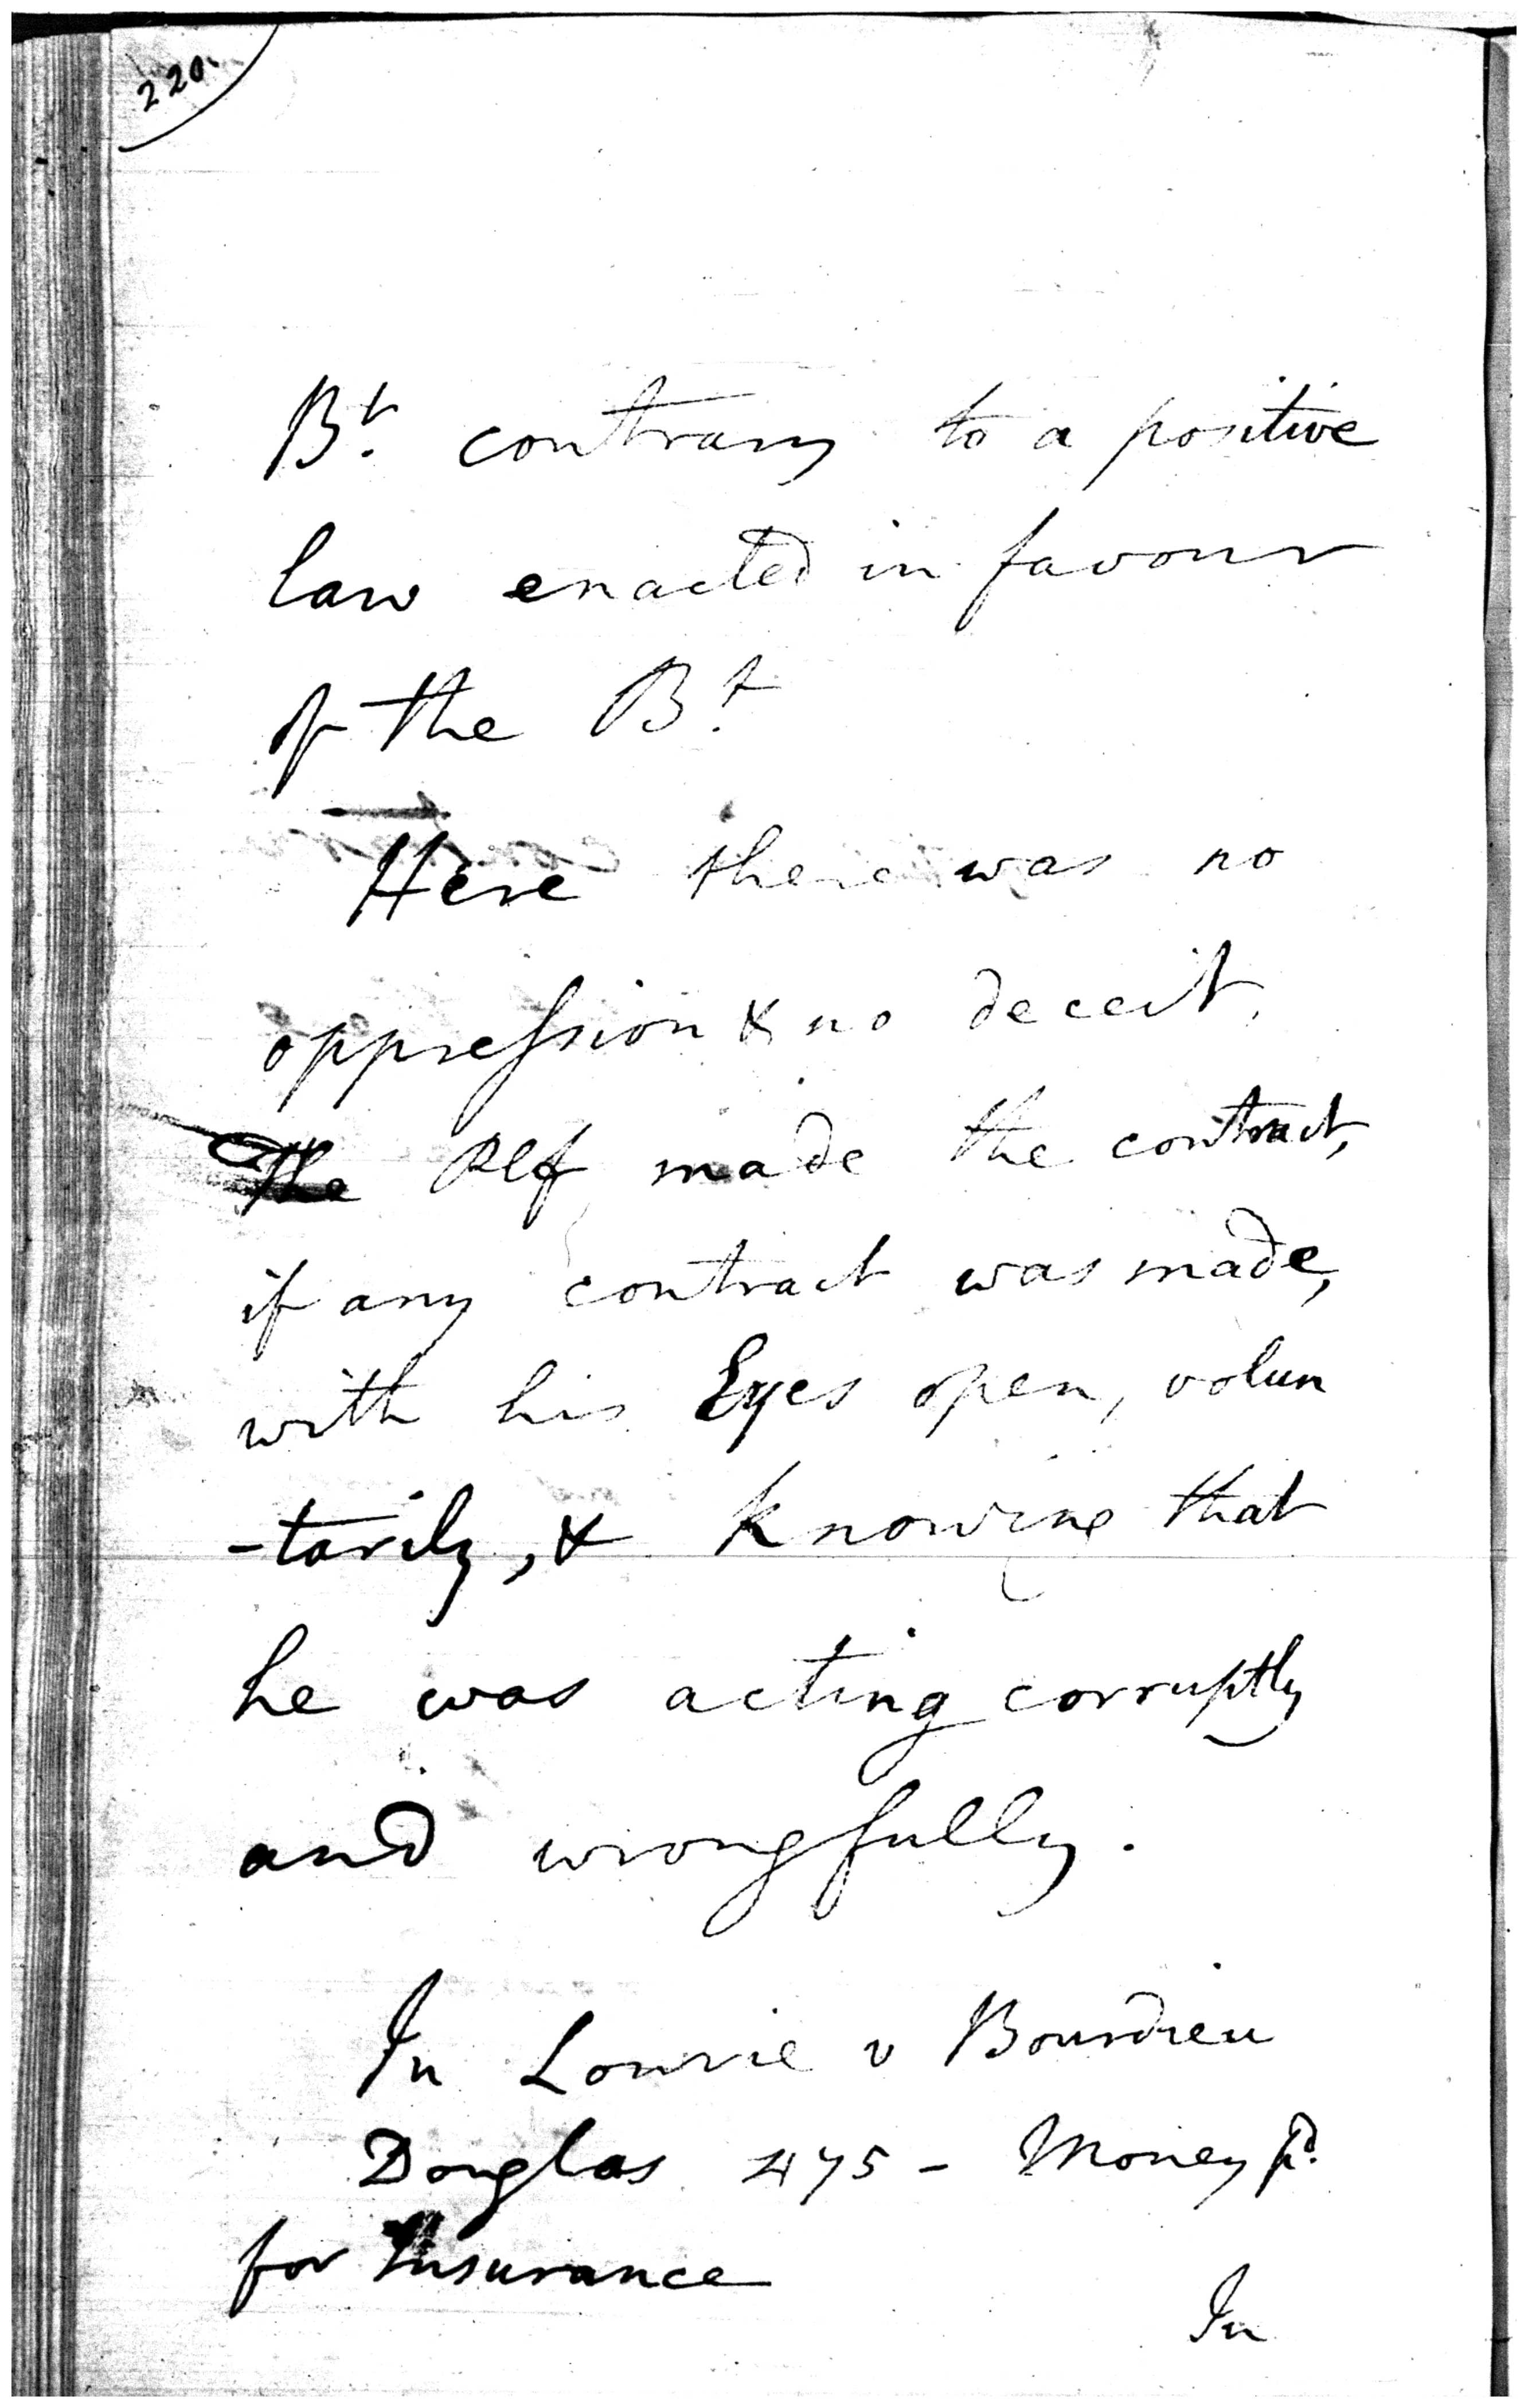 220.
Bt. contrary to a positive
law enacted in favour
of the Bt.
Here there was no
oppression & no deceit.
The Plf made the contract,
if any contract was made,
with his Eyes open, volun
-tarily, & knowing that
he was acting corruptly
and wrongfully.
In Lowrie v Bourdieu
Douglas 475 - Money pd.
for Insurance
In